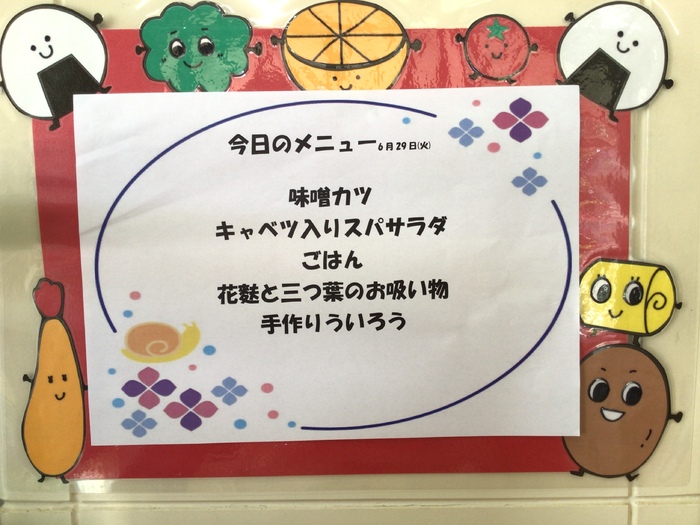 今日のメニュー6月29日(火)
味噌カツ
キャベツ入りスパサラダ
ごはん
花麩と三つ葉のお吸い物
手作りういろう